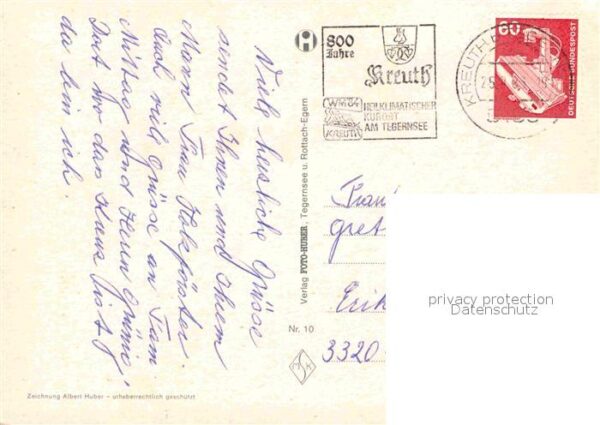 Viele herzliche Grüsse
sendet Ihnen und Ihrem
Mann Frau
Auch viele Grüsse an
und Herrn
Dort wo das Haus ist
da bin ich.
Zeichnung Albert Huber - urheberrechtlich geschützt
Verlag FOTO-HUBER, Tegernsee u. Rottach-Egern
Nr. 10
800
Jahre
Kreuth
WM 84
KREUTH
HEILKLIMATISCHER
KURORT
AM TEGERNSEE
KREUTH
60
DEUTSCHE BUNDESPOST
gret
Erik
3320
privacy protection
Datenschutz